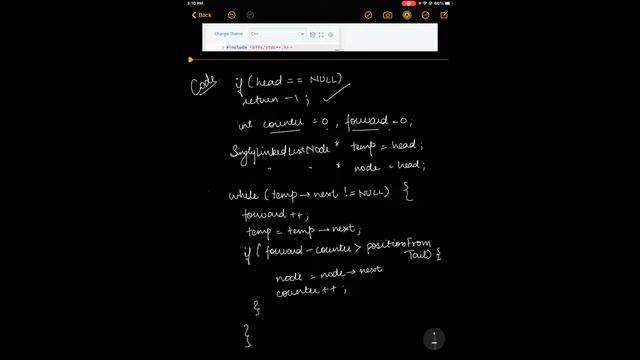 3:10 PM
66%
Back
Change Theme C++
#include <bits/stdc++.h>
Code:
if (head == NULL)
return -1;
int counter = 0, forward = 0;
SinglyLinkedListNode * temp = head;
" " * node = head;
while (temp → next != NULL) {
forward ++;
temp = temp → next;
if (forward - counter > positionFrom
Tail) {
node = node → next
counter ++;
}
}
}